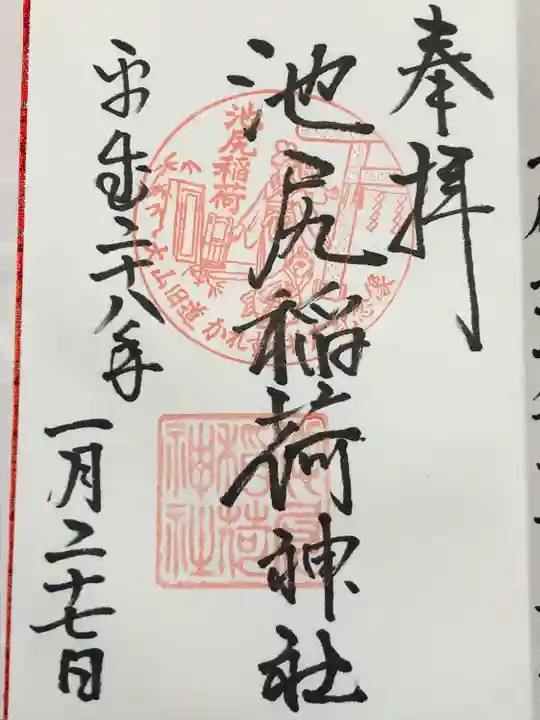 奉拝
池尻稲荷神社
平成二十八年
一月二十七日
池尻稲荷
大山旧道
かれずの井
池尻
稲荷
神社